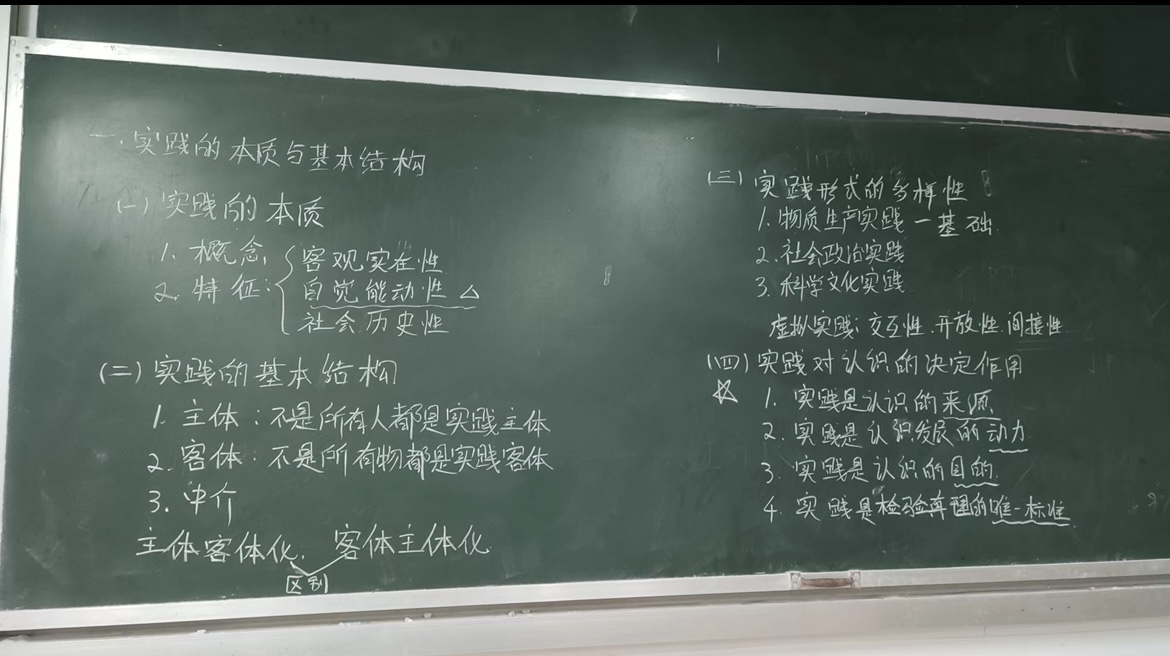 一.实践的本质与基本结构
(一)实践的本质
1.概念
2.特征:{客观实在性
自觉能动性△
社会历史性
(二)实践的基本结构
1.主体:不是所有人都是实践主体
2.客体:不是所有物都是实践客体
3.中介
主体客体化.客体主体化
区别
(三)实践形式的多样性
1.物质生产实践—基础
2.社会政治实践
3.科学文化实践
虚拟实践:交互性.开放性.间接性
(四)实践对认识的决定作用
☆1.实践是认识的来源
2.实践是认识发展的动力
3.实践是认识的目的
4.实践是检验真理的唯一标准